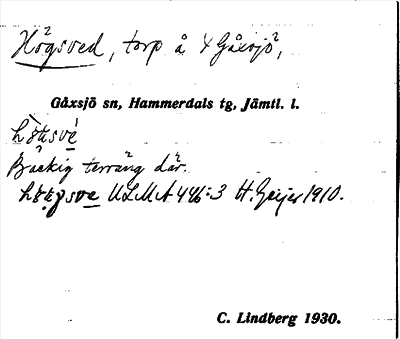 Högsved, torp å Gåxsjö,
Gåxsjö sn, Hammerdals tg, Jämtl. l.
Backig terräng där.
ULMA 446:3 H. Geijer 1910.
C. Lindberg 1930.